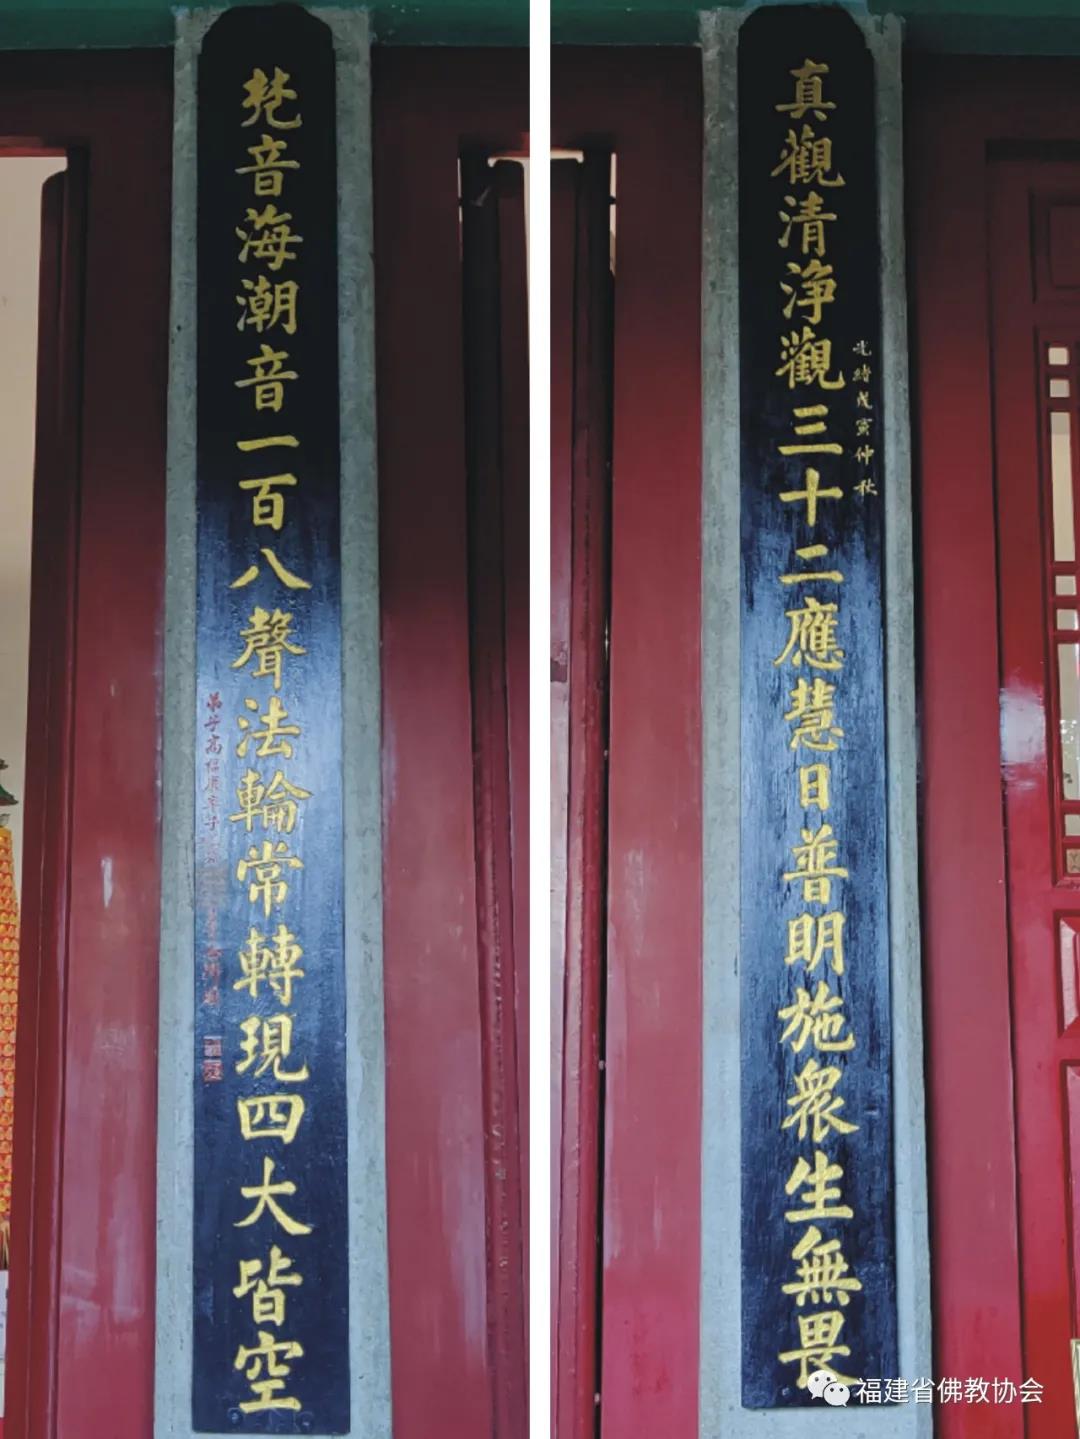 真觀清淨觀三十二應慧日普明施衆生無畏
光緒戊寅仲秋
梵音海潮音一百八聲法輪常轉現四大皆空
弟子高
福建省佛教协会